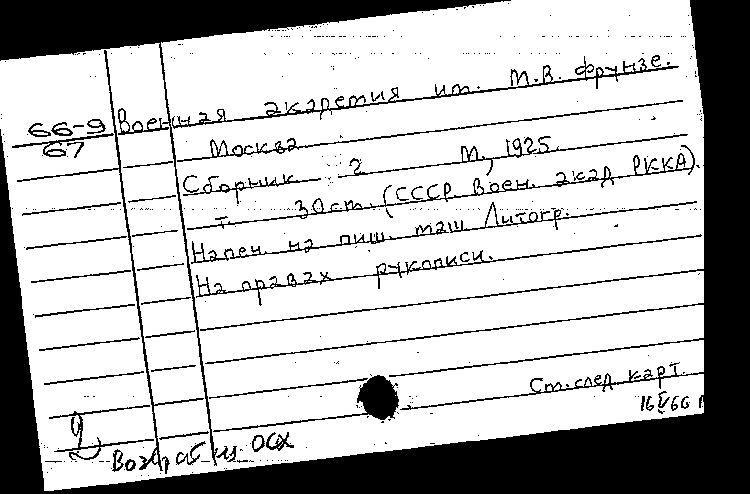 66-9 Военная академия им. М.В. Фрунзе.
67
Москва
Сборник 2 М., 1925.
т. 30 ст. (СССР Воен. акад РККА).
Напеч. на пиш. маш Литогр.
На правах рукописи.
Ст. след. карт.
16 V 66
2
из ОСХ